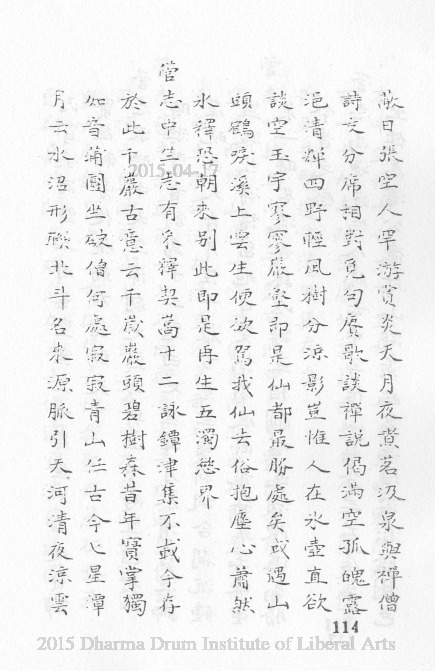 歊日張空人罕游賞炎天月夜煮茗汲泉與禪僧
詩文分席相對覓句賡歌談禪說偈滿空孤魄露
浥清輝四野輕風樹分涼影豈惟人在氷壺直欲
談空玉宇寥寥巖壑即是仙都最勝處矣或遇山
頭鶴唳溪上雲生便欲駕我仙去俗抱塵心蕭然
氷釋恐朝來別此即是再生五濁慾界
管志中生志有宋釋契嵩十二詠鐔津集不載今存
於此千巖古意云千嵗巖頭碧樹森昔年寶掌獨
知音蒲團坐破僧何處寂寂青山任古今七星潭
月云水沼形聯北斗名來源脈引天河清夜涼雲
114
2015-04-17
2015 Dharma Drum Institute of Liberal Arts